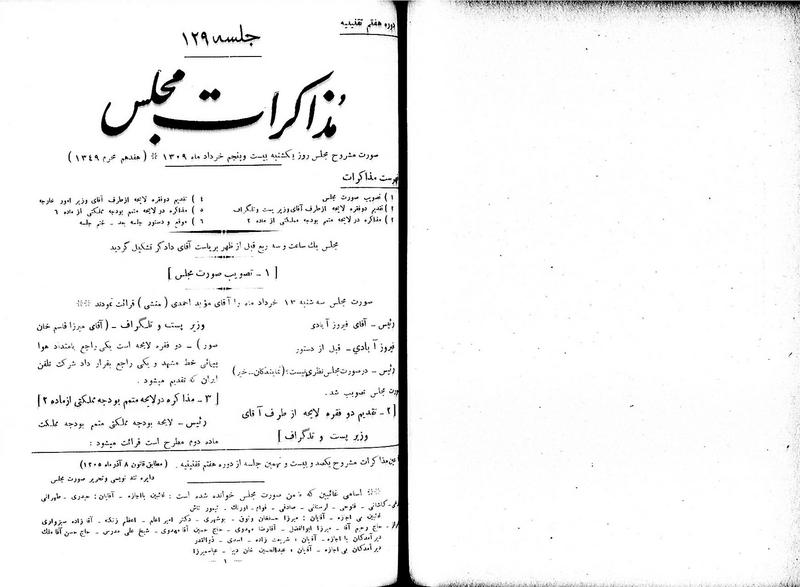 دوره هفتم تقنینیه
جلسه ۱۲۹
مذاکرات مجلس
صورت مشروح مجلس روز یکشنبه بیست وپنجم خرداد ماه ۱۳۰۹ * ( هفدهم محرم ۱۳۴۹ )
فهرست مذاکرات
۱ ) تصویب صورت مجلس
۲ ) تقدیم دوفقره لایحه ازطرف آقای وزیر پست وتلگراف
۳ ) مذاکره در لایحه متمم بودجه مملکتی از ماده ۲
۴ ) تقدیم دوفقره لایحه ازطرف آقای وزیر امور خارجه
۵ ) مذاکره در لایحه متمم بودجه مملکتی از ماده ۶
۶ ) موقع و دستور جلسه بعد - ختم جلسه
مجلس یك ساعت و سه ربع قبل از ظهر بریاست آقای دادگر تشکیل گردید
[ ۱ - تصویب صورت مجلس ]
صورت مجلس سه شنبه ۱۳ خرداد ماه را آقای مؤید احمدی ( منشی ) قرائت نمودند **
رئیس - آقای فیروز آبادی
فیروز آبادی - قبل از دستور
رئیس - درصورت مجلس نظری نیست؟ (نمایندگان - خیر)
صورت مجلس تصویب شد .
[ ۲ - تقدیم دو فقره لایحه از طرف آقای
وزیر پست و تلگراف ]
وزیر پست و تلگراف - ( آقای میرزا قاسم خان
صور ) - دو فقره لایحه است یکی راجع بامتداد هوا
پیمائی خط مشهد و یکی راجع بقرار داد شرکت تلفن
ایران که تقدیم میشود .
[ ۳ - مذاکره در لایحه متمم بودجه مملکتی ازماده ۲ ]
رئیس - لایحه مملکتی متمم بودجه مملکت
ماده دوم مطرح است قرائت میشود :
عین مذاکرات مشروح یکصد و بیست و نهمین جلسه از دوره هفتم تقنینیه . ( مطابق قانون ۸ آذر ماه ۱۳۰۵ )
دایره تند نویسی و تحریر صورت مجلس
** اسامی غائبین که ضمن صورت مجلس خوانده شده است : غائبین بااجازه - آقایان : حیدری - طهرانی
کاشانی - فتوحی - لرستانی - صادقی - قوام - اورنگ - تیمور تاش
غائبین بی اجازه - آقایان : میرزا حسنخان وثوق - بوشهری - دکتر امیر اعلم - اعظم زنگنه - آقا زاده سبزواری
حاج رحیم آقا - میرزا ابوالفضل - آقارضا مهدوی - حاج حسین آقا مهدوی - شیخ علی مدرس - حاج حسن آقا ملك
دیر آمدگان با اجازه - آقایان : شریعت زاده - اسدی - ذوالقدر
دیر آمدگان بی اجازه - آقایان : عبدالحسین خان دیبا - عباسمیرزا
— ۱ —